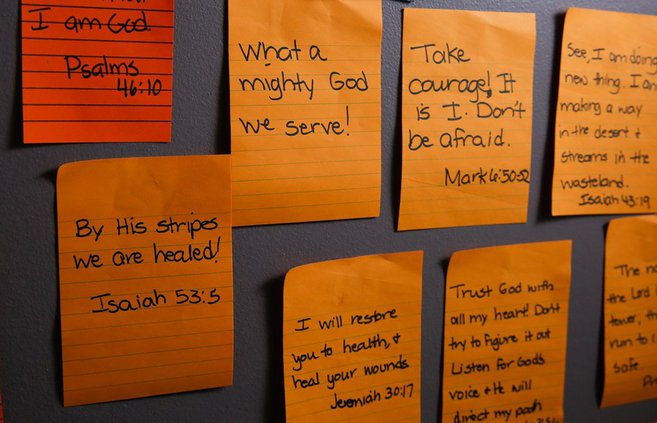 I am God.
Psalms
46:10
What a
mighty God
we serve!
Take
courage! It
is I. Don't
be afraid.
Mark 6:50-52
See, I am doing
new thing. I am
making a way
in the desert &
streams in the
wasteland.
Isaiah 43:19
By His stripes
we are healed!
Isaiah 53:5
I will restore
you to health, &
heal your wounds
Jeremiah 30:17
Trust God with
all my heart! Don't
try to figure it out
Listen for Gods
voice & He will
direct my path
The
the Lord
tower, th
run to
safe.